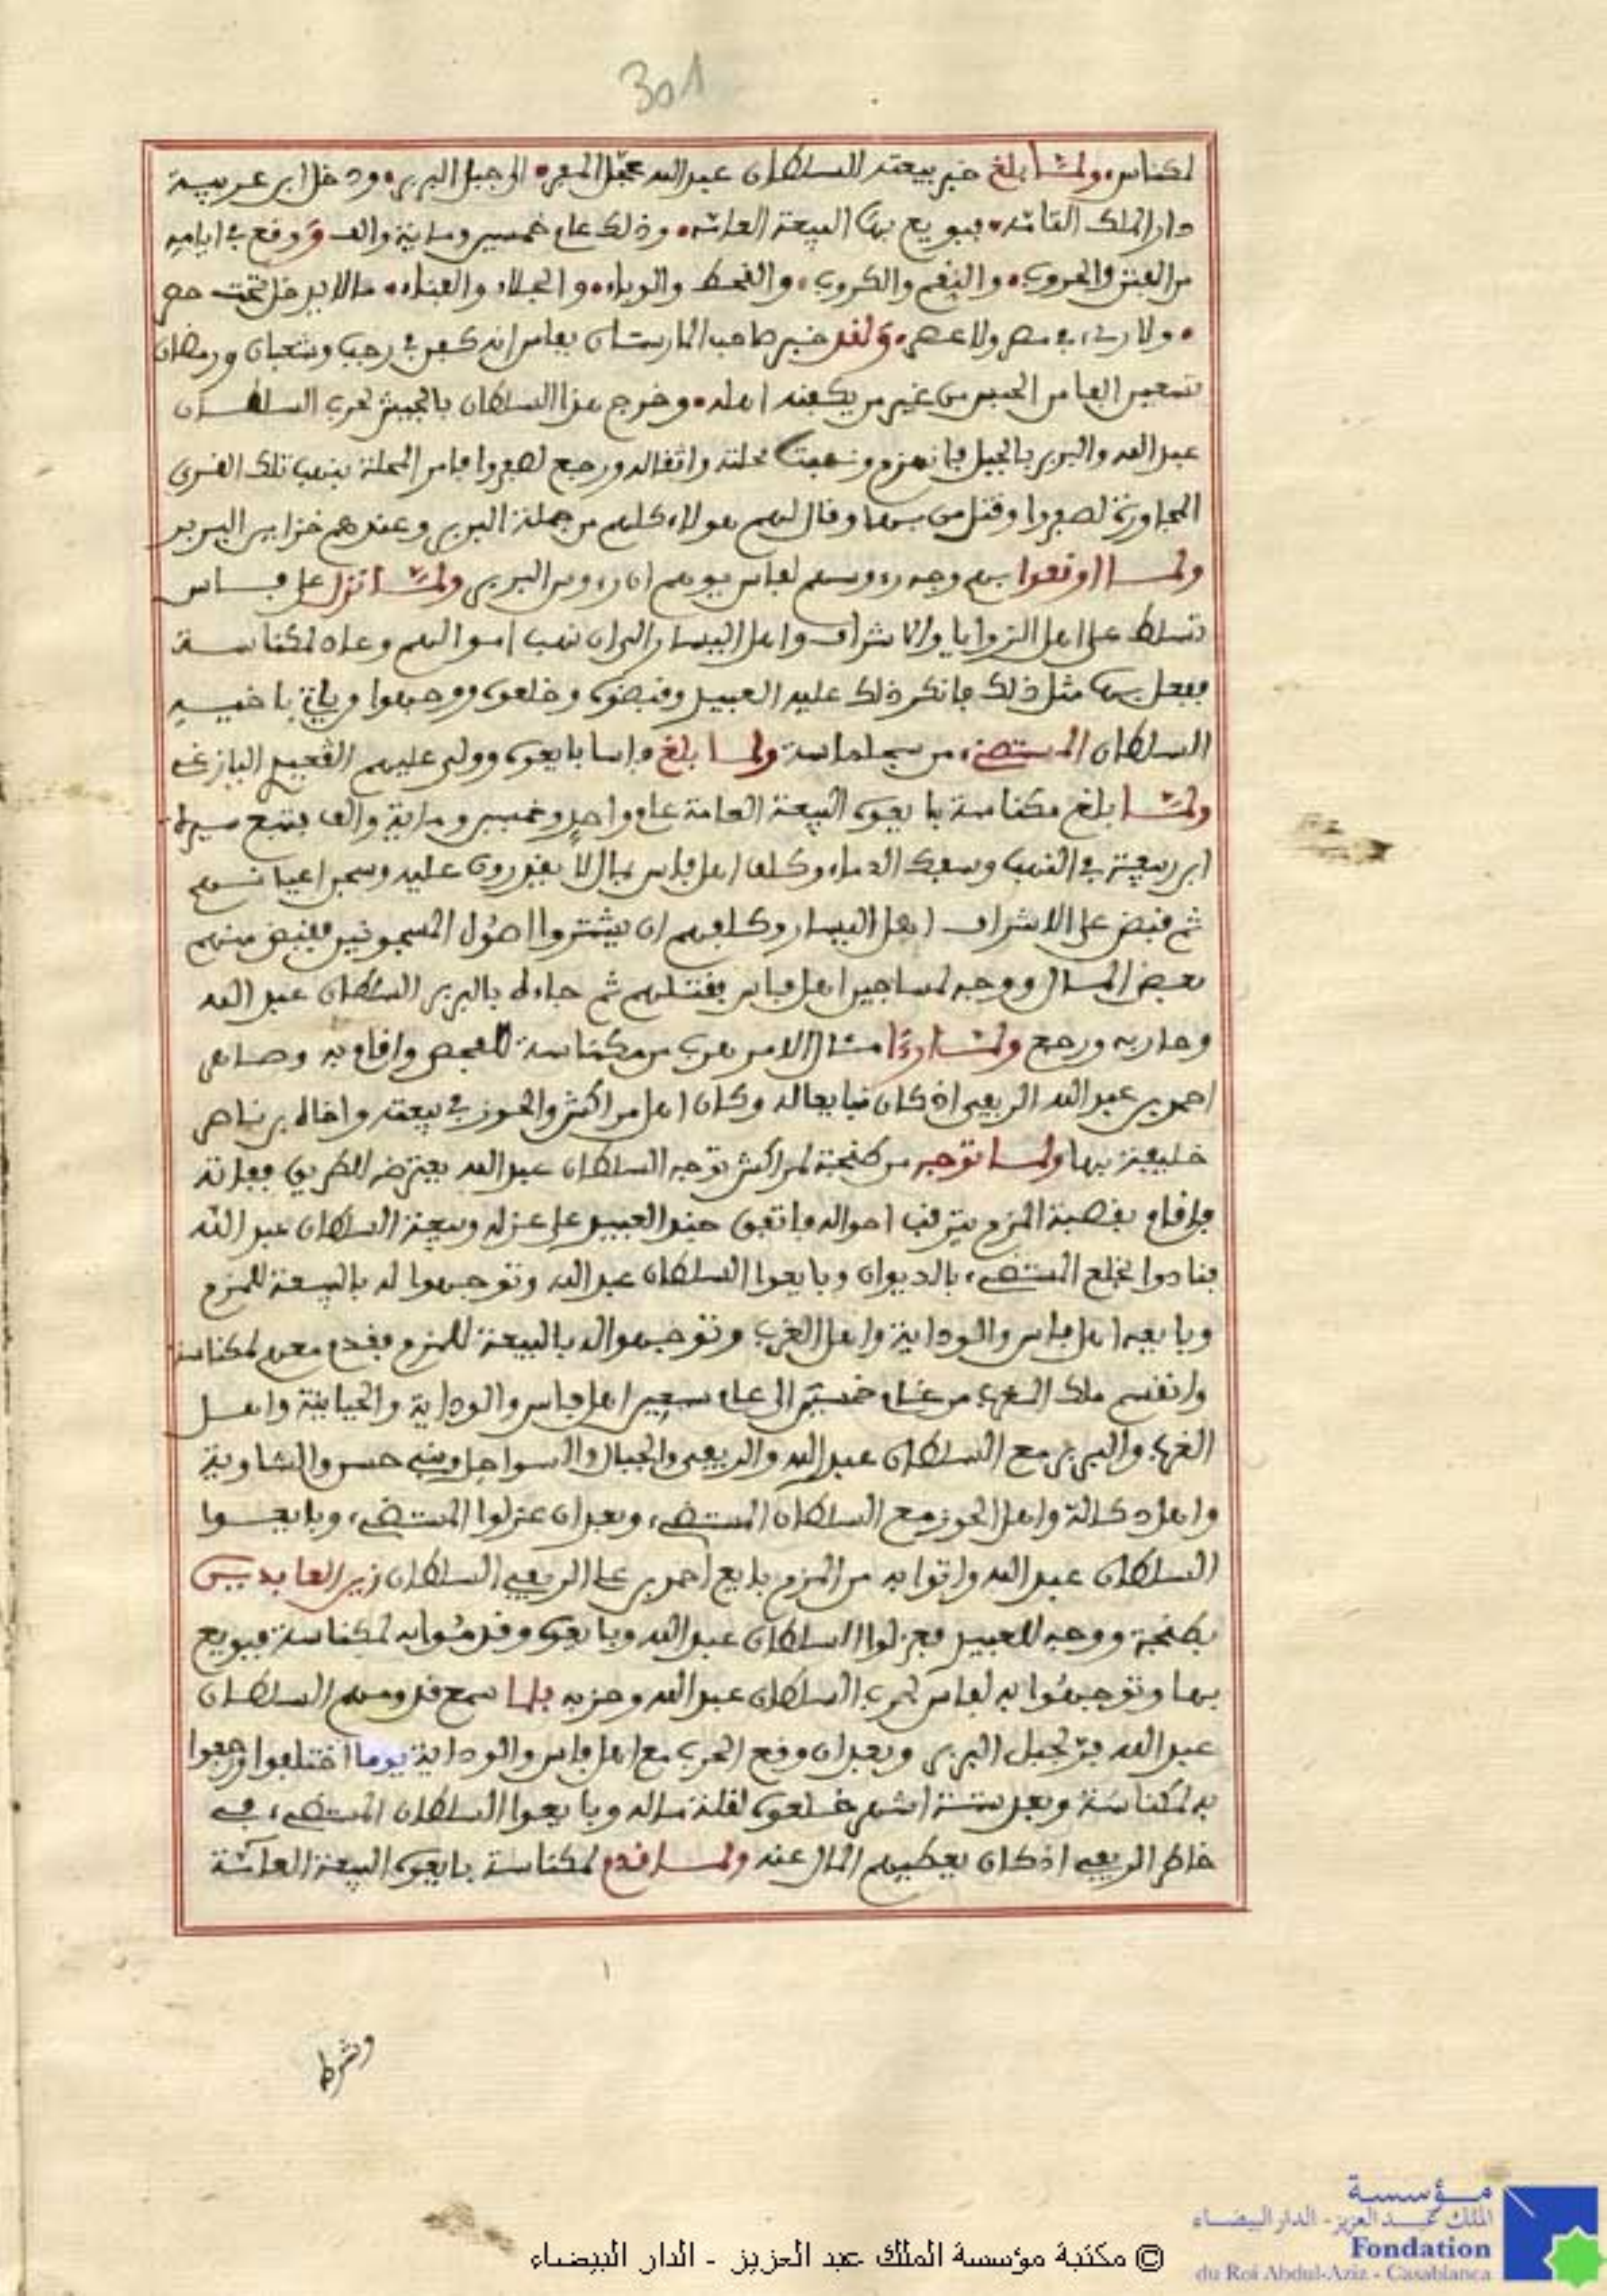 301
لمكناس، ولما بلغ خبر بيعته للسلطان عبد الله عجّل المفر، الى جبل البربر، ودخل ابن عريبة
دار الملك القائمة، فبويع بها البيعة العامة، وذلك عام خمسين ومائة والف، ووقع في ايامه
من الفتن والحروب، والنقم والكروب، والقحط والوباء، والجلاء والفناء، ما لا يدخل تحت حصر
، ولا رءي في مصر ولا عصر، ولقد خبر صاحب المارستان بفاس انه كفن في رجب وشعبان ورمضان
عبد الله والبربر بالجبل فانهزم ونهبت محلته واثقاله ورجع لصفروا فامر المحلة بنهب تلك القرى
المجاورة لصفروا وقتل من بها وقال لهم هولاء كلهم من جملة البربر وعندهم خزاين البربر
ولما اوقعوا بهم وجه رءوسهم لفاس يوهم ان رءوس البربر ولما نزل على فاس
تسلط على اهل الزوايا والاشراف واهل اليسار الى ان نهب اموالهم وعاد لمكناسة
ففعل بها مثل ذلك فانكر ذلك عليه العبيد وقبضوه وخلعوه ووجهوا وياتي باخيه
السلطان المستضيء من سجلماسة ولما بلغ فاسا بايعوه وولى عليهم القعيد اليازغي
ولما بلغ مكناسة بايعوه البيعة العامة عام واحد وخمسين ومائة والف فتتبع سيرة
ابن ريعية في النهب وسفك الدماء وكلف اهل فاس بمال لا يقدرون عليه وسجن اعيانهم
ثم قبض على الاشراف اهل اليسار وكلفهم ان يشتروا اصول المسجونين فقبض منهم
بعض المال ووجه لمساجين اهل فاس بقتلهم ثم جاءه بالبربر السلطان عبد الله
وحاربه ورجع ولما رءا مثال الامر هرب من مكناسة للفحص واقام به وصاهر
احمد بن عبد الله الريفي اذ كان قبايعا له وكان اهل مراكش والحوز في بيعته واخاه بن ناصر
خليفته بها ولما توجه من طنجة لمراكش توجه السلطان عبد الله يعترضه الطريق ففاته
فاقام بقصبة المزم يترقب احواله فاتفق جند العبيد على عزله وبيعة السلطان عبد الله
فنادوا بخلع المستضيء بالديوان وبايعوا السلطان عبد الله وتوجهوا له بالبيعة للمزم
وبايعه اهل فاس والوداية واهل الغرب وتوجهوا له بالبيعة للمزم فقدم معهم لمكناسة
وانقسم ملك المغرب من عام خمسين الى عام سبعين اهل فاس والوداية والحياينة واهل
الغرب والبربر مع السلطان عبد الله والريفي والجبال والسواحل وبني حسن والشاوية
واهل دكالة واهل الحوز مع السلطان المستضيء، وبعد ان عزلوا المستضيء، وبايعوا
السلطان عبد الله واتوا به من المزم بايع احمد بن علي الريفي السلطان زين العابدين
بطنجة ووجه للعبيد فعزلوا السلطان عبد الله وبايعوه وقدموا به لمكناسة فبويع
بها وتوجهوا به لفاس لحرب السلطان عبد الله وحزبه فلما سمع قدومهم السلطان
عبد الله فر لجبل البربر وبعد ان وقع الحرب مع اهل فاس والوداية يوما اختلفوا ورجعوا
به لمكناسة وبعد ستة اشهر خلعوه لقلة ماله وبايعوا السلطان المستضيء، في
خاطر الريفي اذ كان يعطيهم المال عنه ولما قدم لمكناسة بايعوه البيعة العامة
وشرط
© مكتبة مؤسسة الملك عبد العزيز - الدار البيضاء
مؤسسة
الملك عبد العزيز - الدار البيضاء
Fondation
du Roi Abdul-Aziz - Casablanca